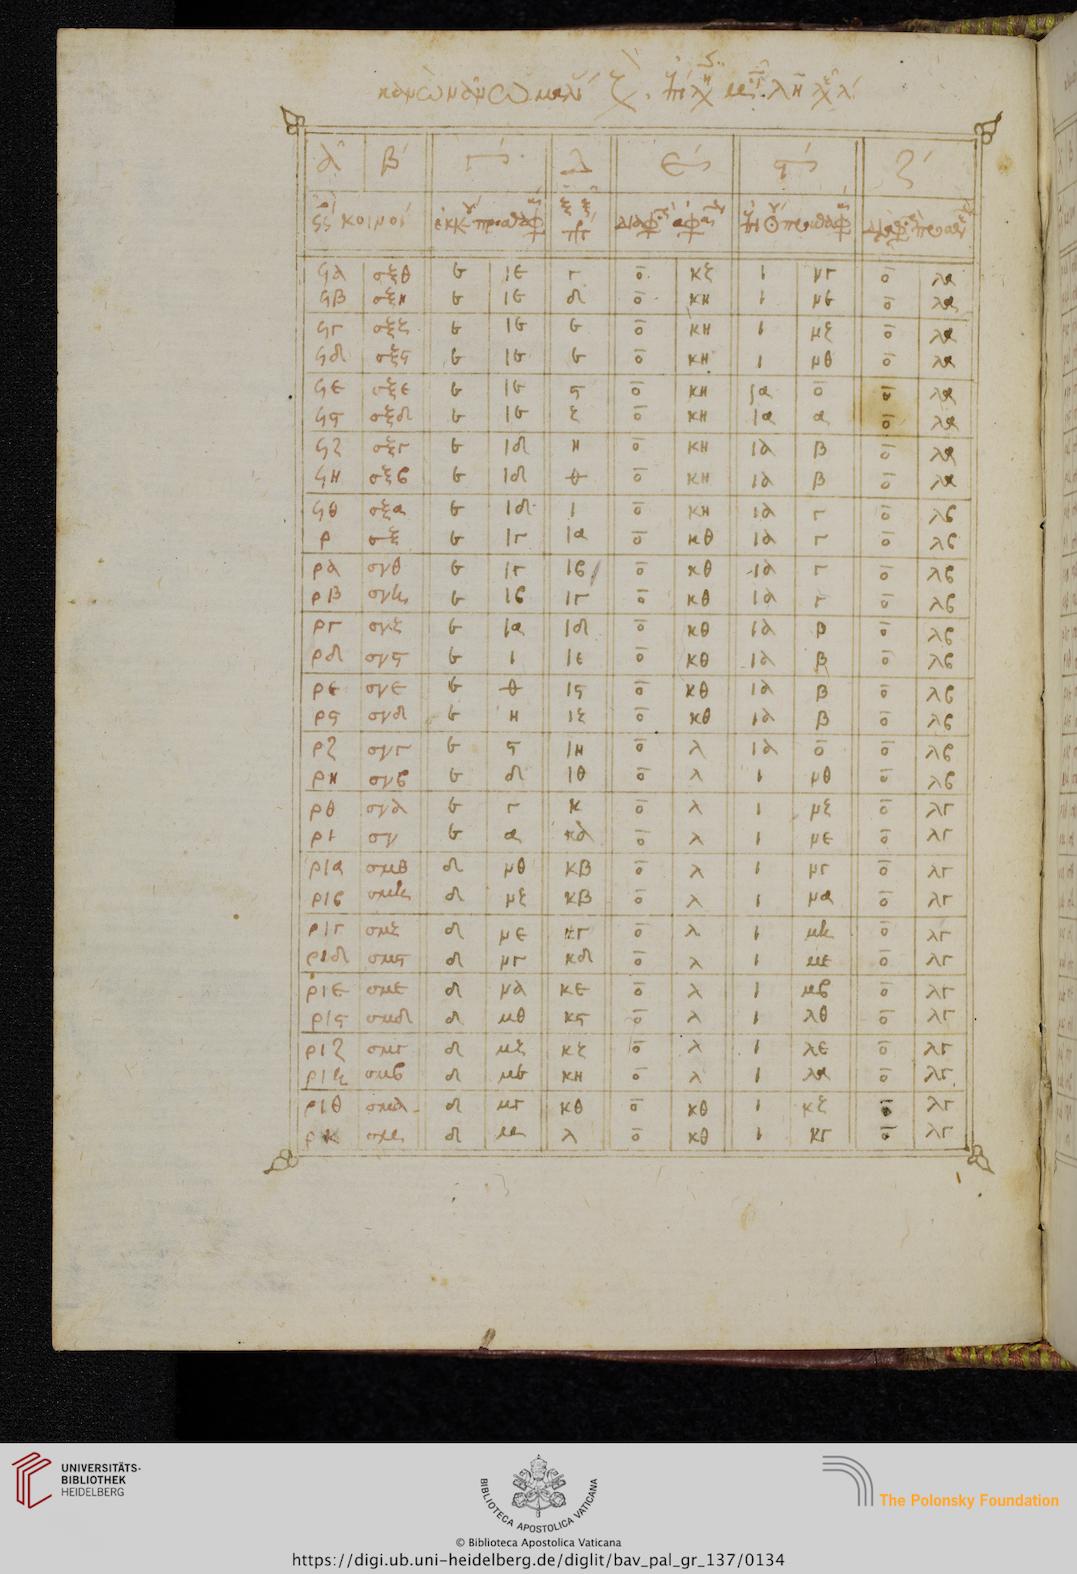 α β γ δ ε ϛ ζ
κοινοι
ϟα σξθ ε ιε γ ο κζ ι μγ ο λα
ϟβ σξη ε ιε δ ο κη ι με ο λα
ϟγ σξζ ε ιε ε ο κη ι μζ ο λα
ϟδ σξϛ ε ιε ε ο κη ι μθ ο λα
ϟε σξε ε ιε ϛ ο κη ια ο ο λα
ϟϛ σξδ ε ιε ζ ο κη ια α ο λα
ϟζ σξγ ε ιδ η ο κη ια β ο λα
ϟη σξβ ε ιδ θ ο κη ια β ο λα
ϟθ σξα ε ιδ ι ο κη ια γ ο λβ
ρ σξ ε ιγ ια ο κθ ια γ ο λβ
ρα σνθ ε ιγ ιβ ο κθ ια γ ο λβ
ρβ σνη ε ιβ ιγ ο κθ ια γ ο λβ
ργ σνζ ε ια ιδ ο κθ ια β ο λβ
ρδ σνϛ ε ι ιε ο κθ ια β ο λβ
ρε σνε ε θ ιϛ ο κθ ια β ο λβ
ρϛ σνδ ε η ιζ ο κθ ια β ο λβ
ρζ σνγ ε ϛ ιη ο λ ια ο ο λβ
ρη σνβ ε δ ιθ ο λ ι μθ ο λβ
ρθ σνα ε γ κ ο λ ι μζ ο λγ
ρι σν ε α κα ο λ ι με ο λγ
ρια σμθ δ μθ κβ ο λ ι μγ ο λγ
ριβ σμη δ μζ κβ ο λ ι μα ο λγ
ριγ σμζ δ με κγ ο λ ι μη ο λγ
ριδ σμϛ δ μγ κδ ο λ ι με ο λγ
ριε σμε δ μα κε ο λ ι μβ ο λγ
ριϛ σμδ δ μθ κϛ ο λ ι λθ ο λγ
ριζ σμγ δ μζ κζ ο λ ι λε ο λγ
ριη σμβ δ με κη ο λ ι λα ο λγ
ριθ σμα δ μγ κθ ο κθ ι κζ ο λγ
ρκ σμ δ μ λ ο κθ ι κγ ο λγ
UNIVERSITÄTS-
BIBLIOTHEK
HEIDELBERG
BIBLIOTECA APOSTOLICA VATICANA
The Polonsky Foundation
© Biblioteca Apostolica Vaticana
https://digi.ub.uni-heidelberg.de/diglit/bav_pal_gr_137/0134